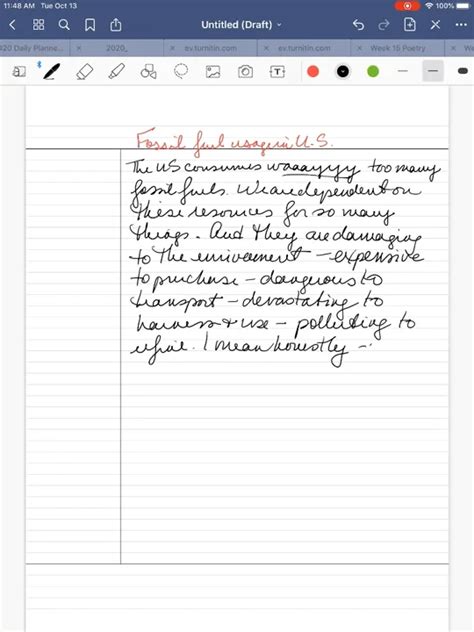 11:48 AM Tue Oct 13 100%
Untitled (Draft)
020 Daily Planne... 2020_ ev.turnitin.com ev.turnitin.com Week 15 Poetry We
Fossil fuel usage in U.S.
The US consumes waaayyyy too many
fossil fuels. We are dependent on
these resources for so many
things. And they are damaging
to the enivorement - expensive
to purchase - dangerous to
transport - devastating to
harness & use - polluting to
refine. I mean honestly -